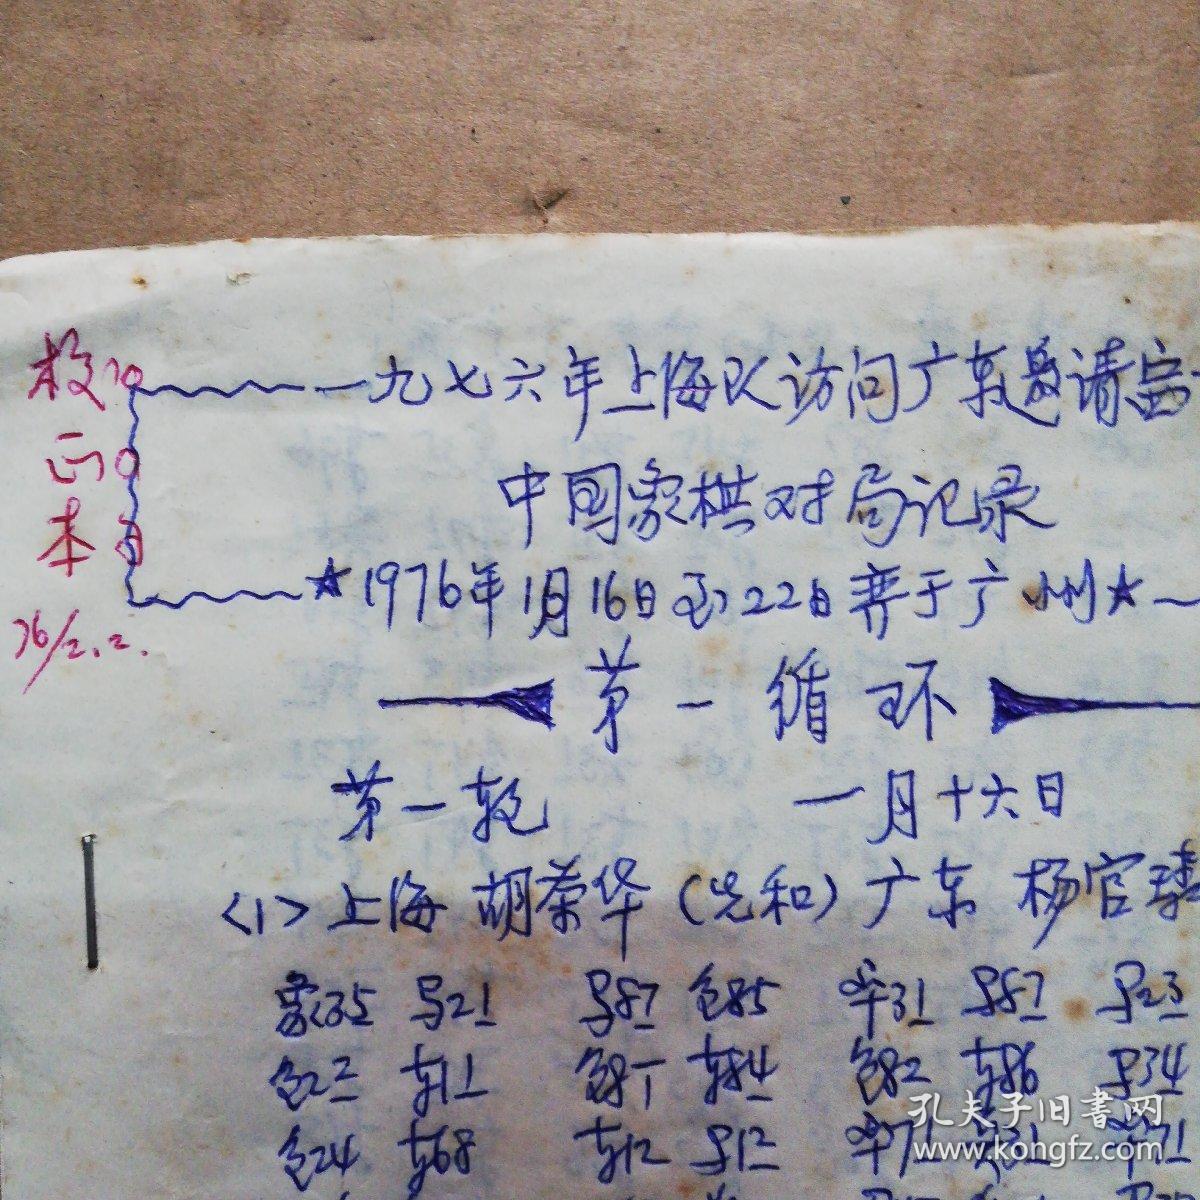 校
正
本
76/2.2.
一九七六年上海队访问广东邀请
中国象棋对局记录
★1976年1月16日至22日弈于广州★
第一循环
第一轮 一月十六日
<1>上海 胡荣华 (先和) 广东 杨官璘
象35 马21 马87 炮85 卒31 马87 马23
炮22 车11 炮81 车84 炮82 车86 马34
炮24 车68 车12 马12 卒71
孔夫子旧书网
www.kongfz.com